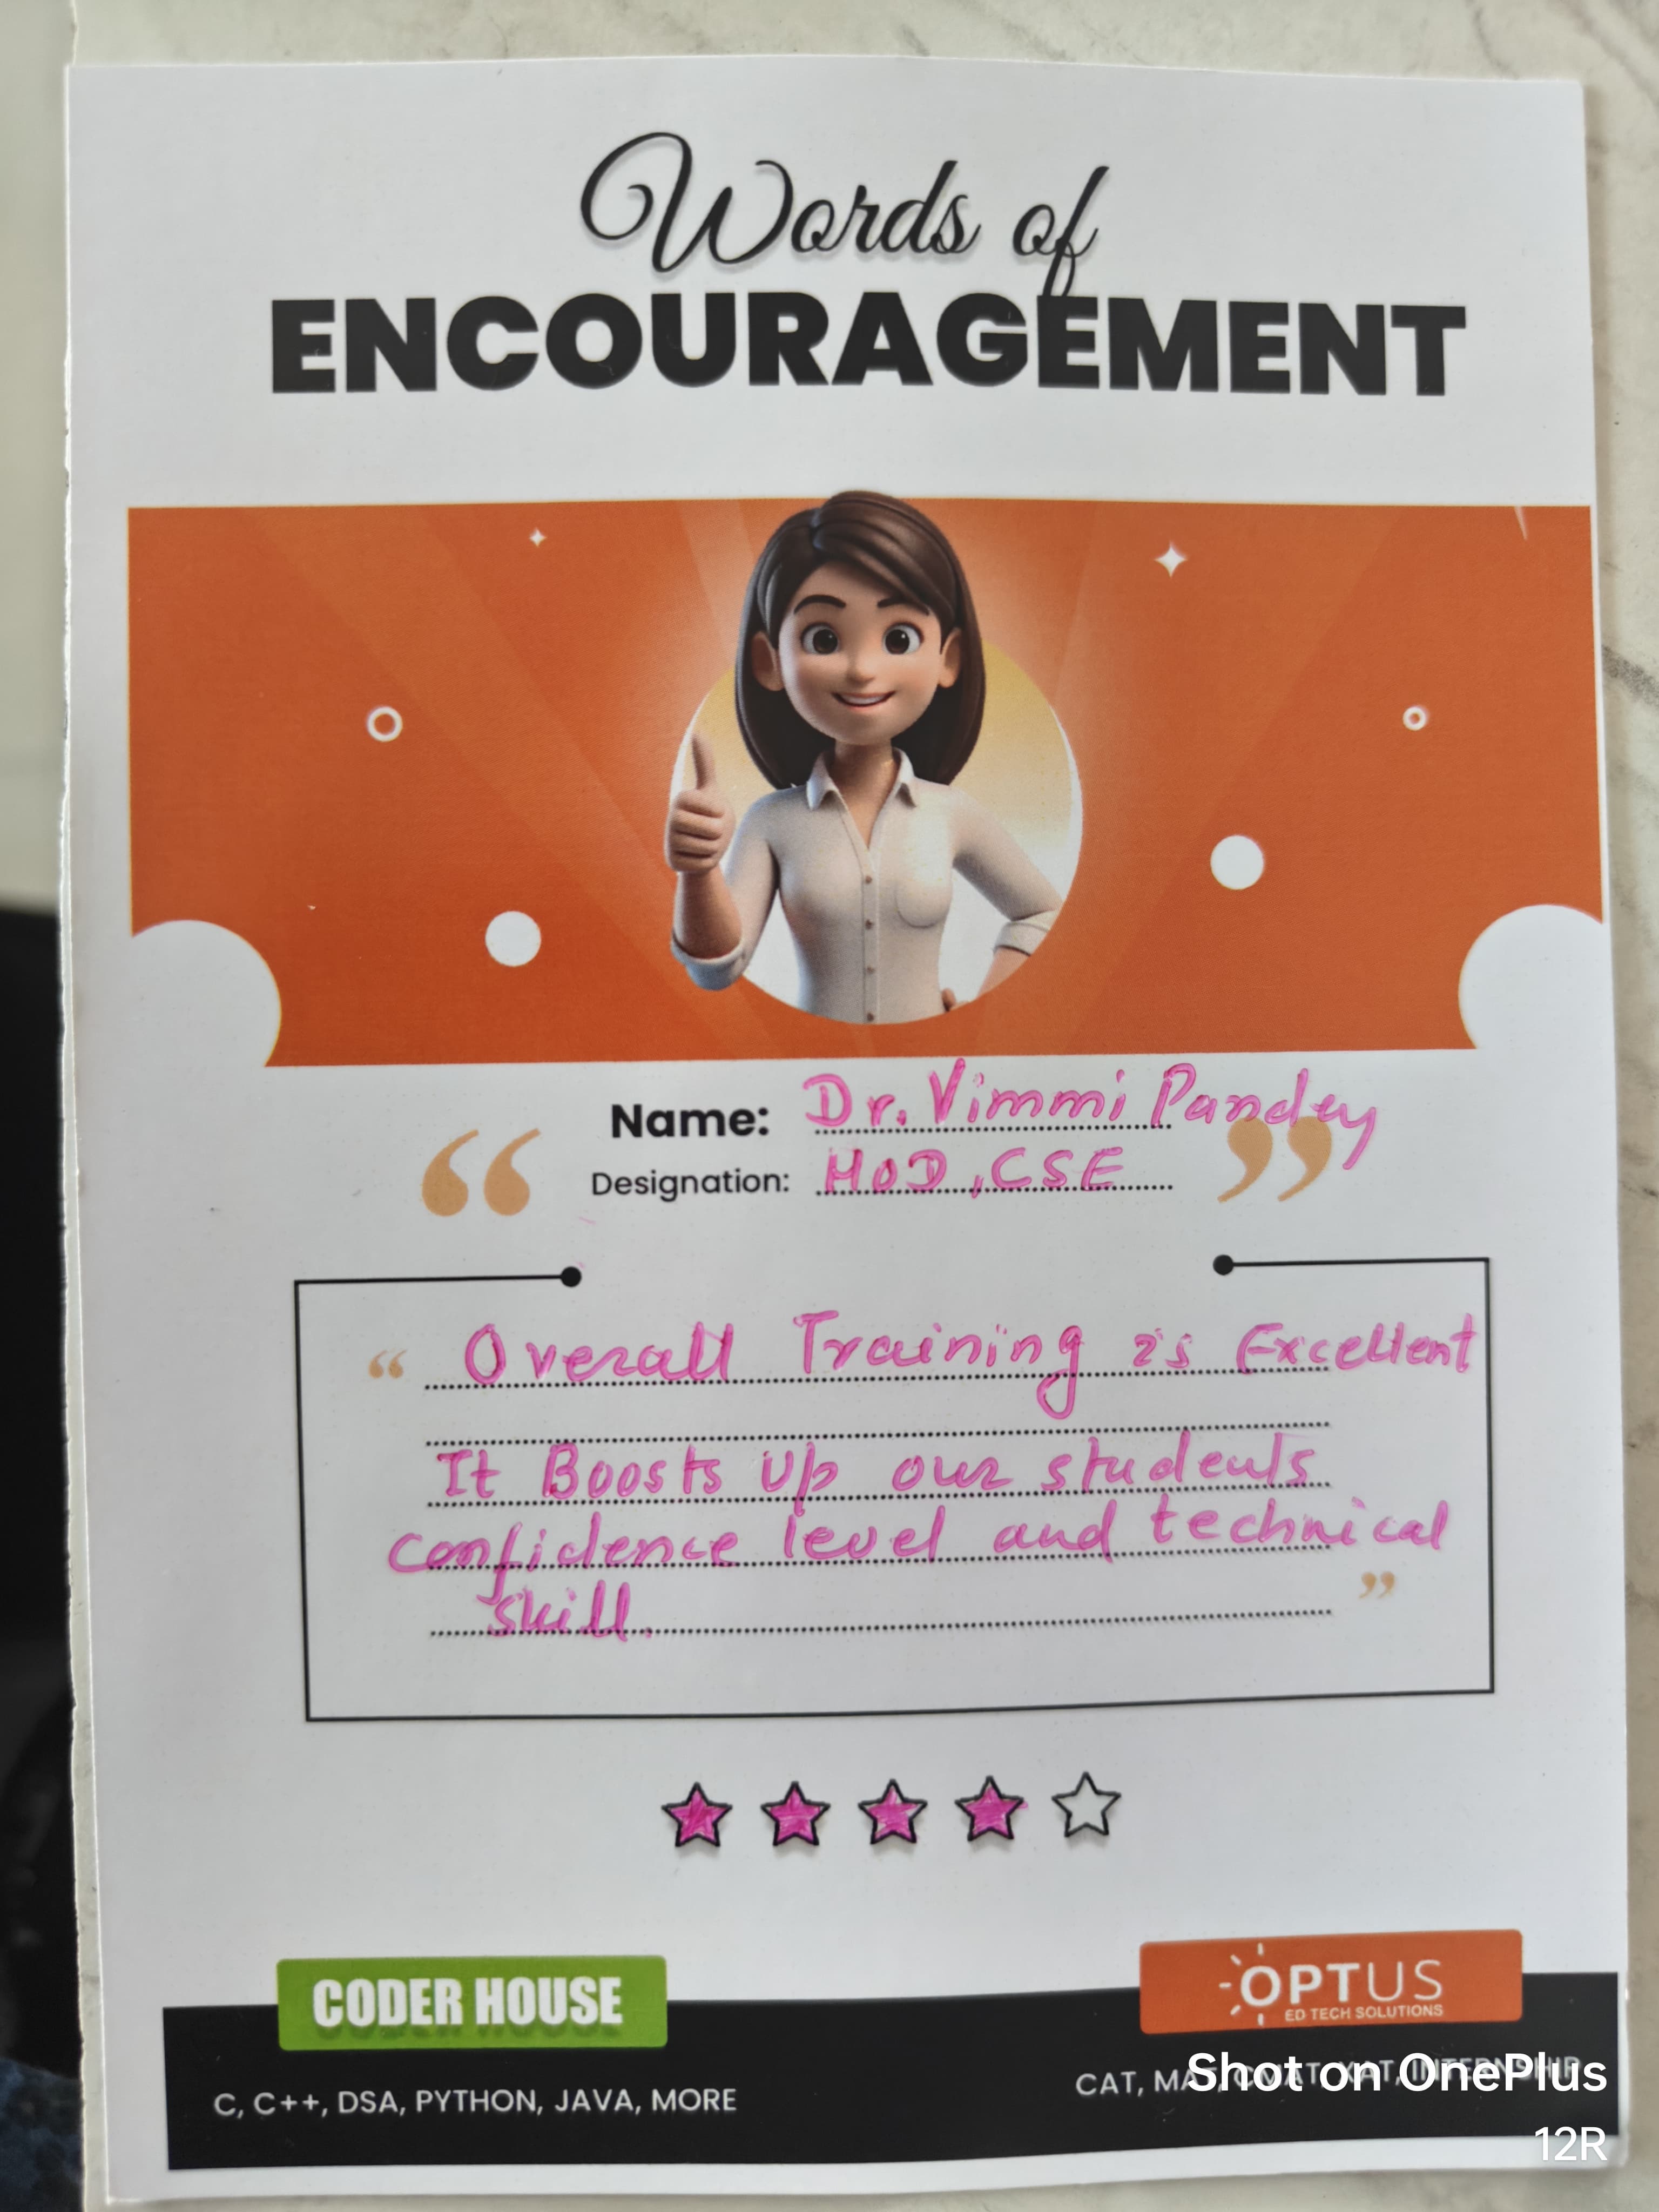 Words of
ENCOURAGEMENT
Name: Dr. Vimmi Pandey
Designation: HOD, CSE
“ Overall Training is Excellent
It Boosts Up our students
confidence level and technical
skill. ”
CODER HOUSE
OPTUS
ED TECH SOLUTIONS
C, C++, DSA, PYTHON, JAVA, MORE
CAT, MAT, CMAT, XAT, INTERNSHIP
Shot on OnePlus
12R